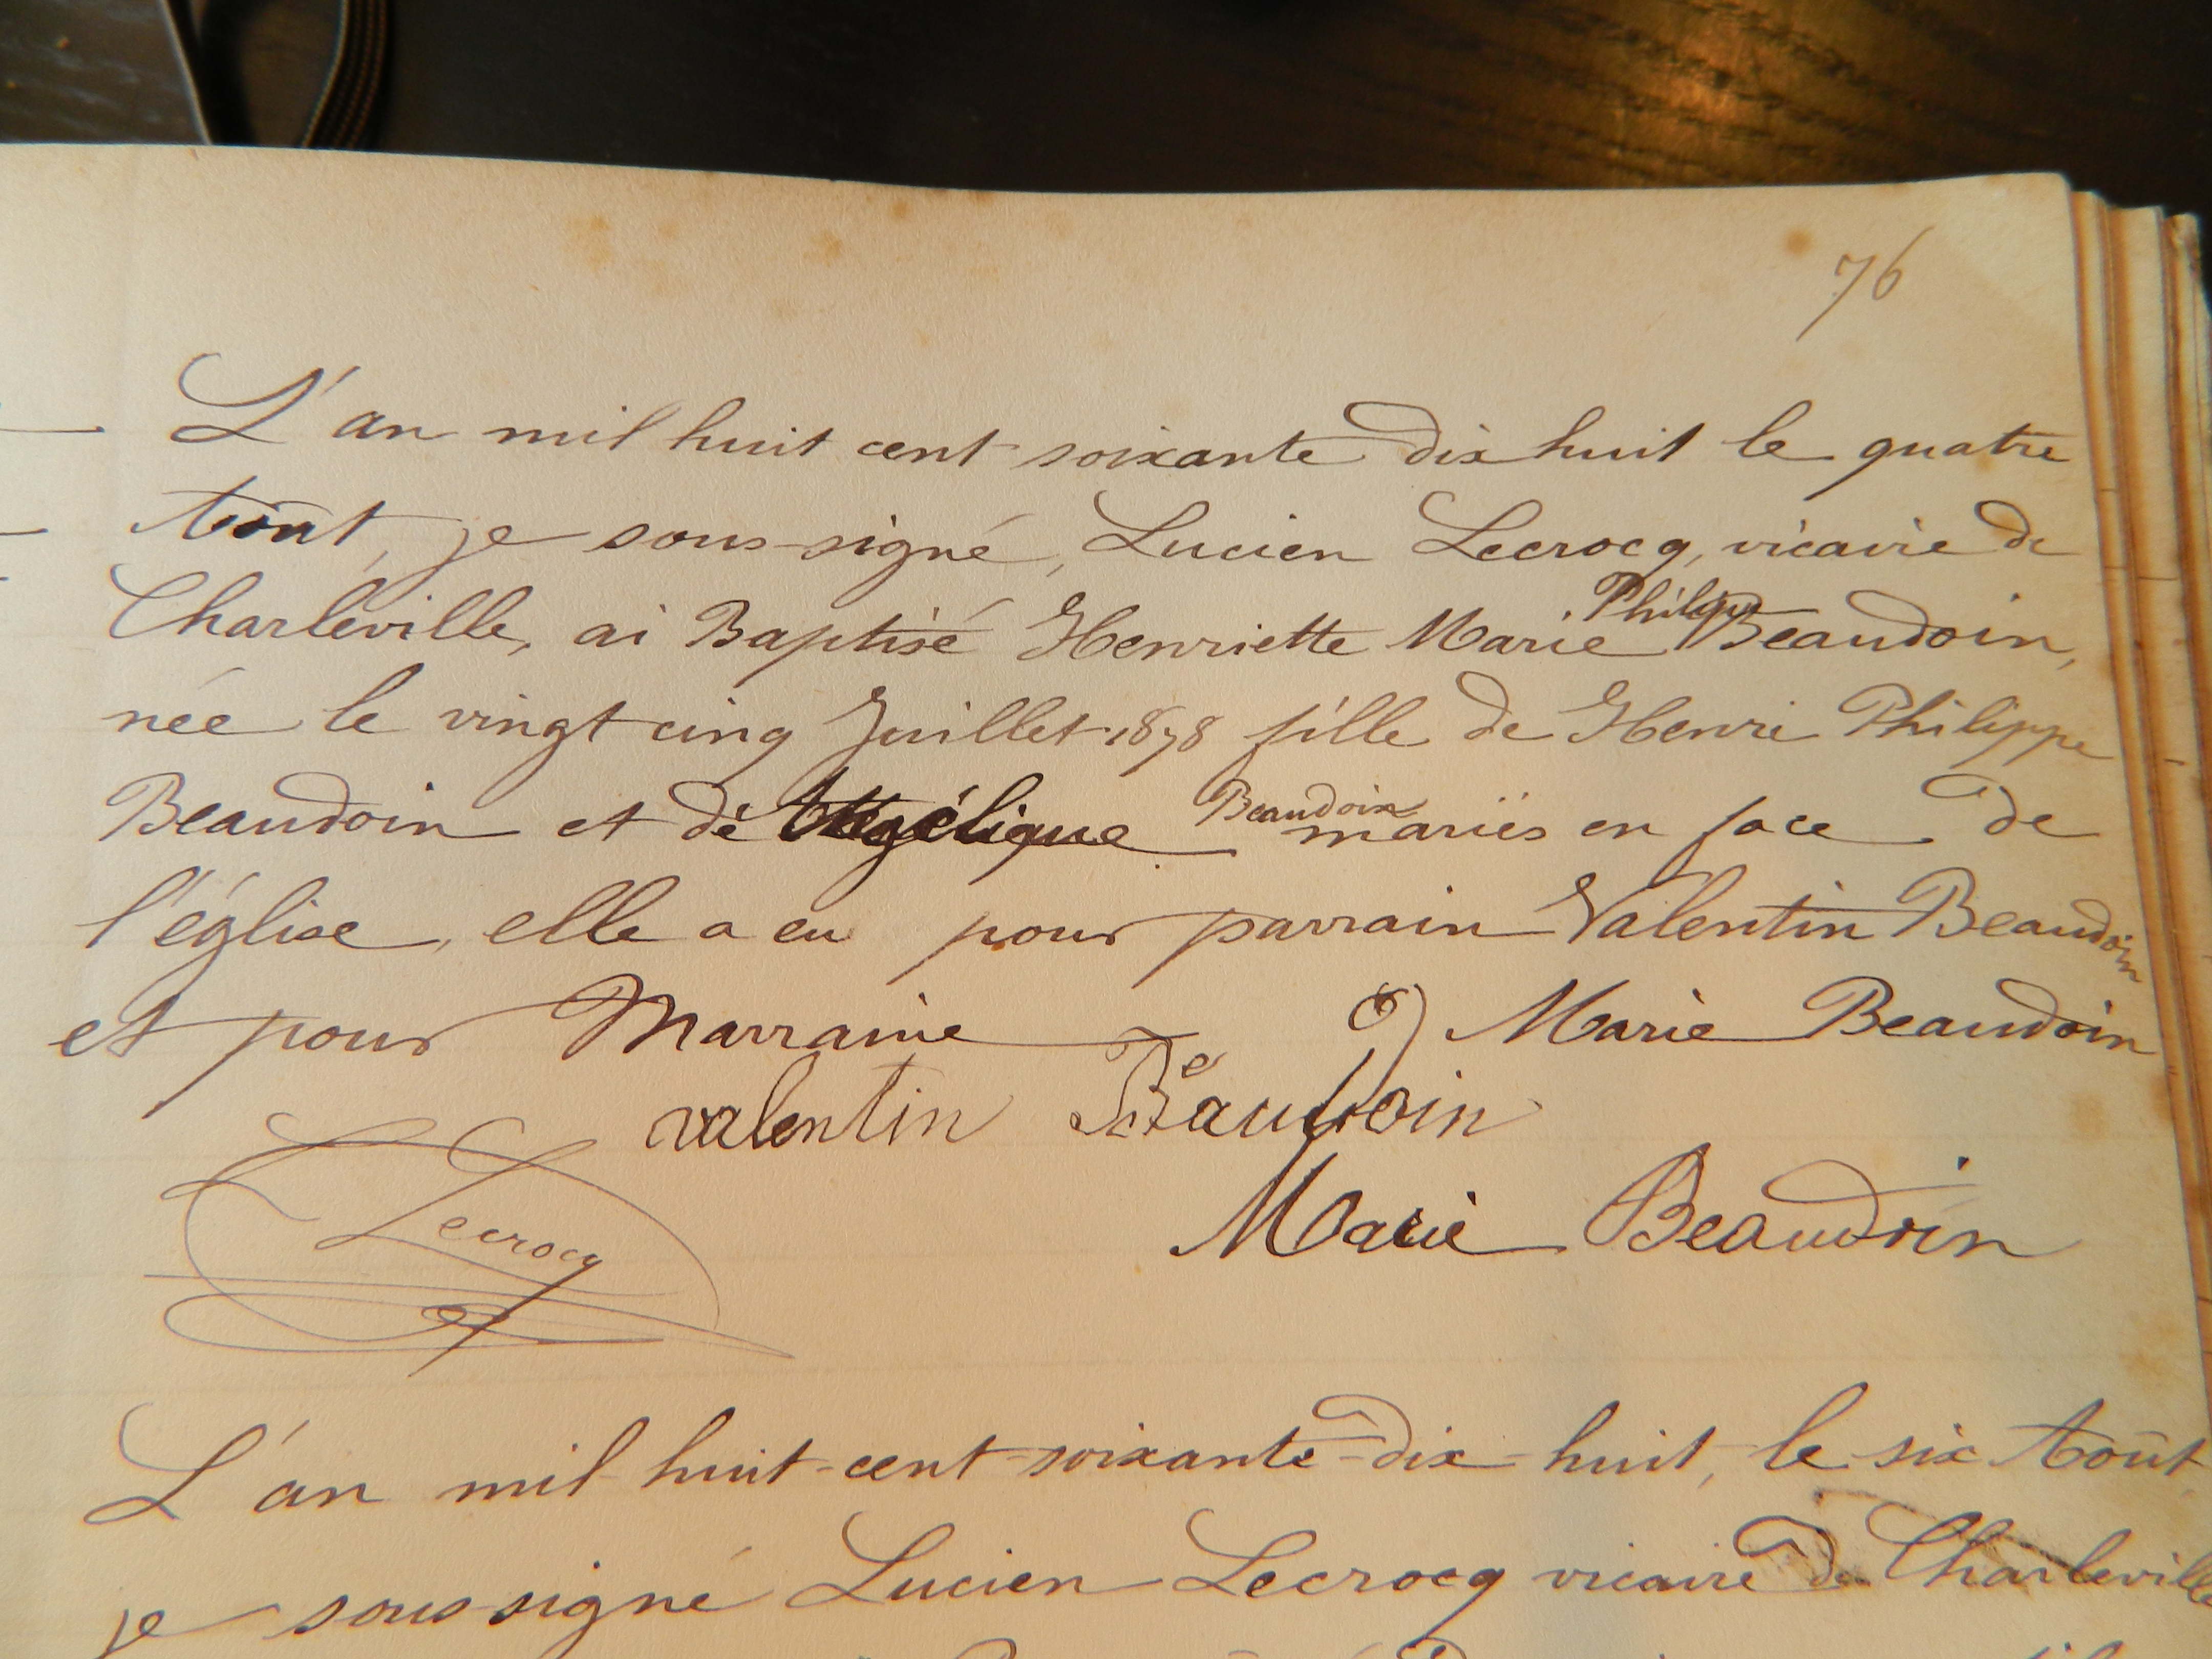 76
L'an mil huit cent soixante dix huit le quatre
Août, je sous-signé, Lucien Lecrocq, vicaire de
Philippe
Charleville, ai Baptisé Henriette Marie Beaudoin,
née le vingt cinq Juillet 1878 fille de Henri Philippe
Beaudoin
Beaudoin et de Angélique mariés en face de
l'église, elle a eu pour parrain Valentin Beaudoin
et pour Marraine Marie Beaudoin
valentin Beaudoin
Lecrocq
Marie Beaudoin
L'an mil-huit-cent-soixante-dix-huit, le six Août,
je sous-signé Lucien Lecrocq vicaire de Charleville